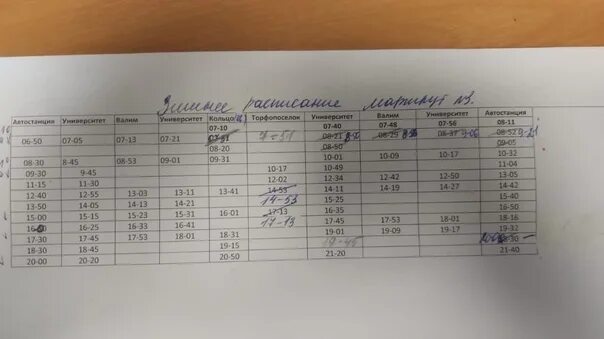 Зимнее расписание маршрут №3.
Автостанция Университет Валим Университет Кольцо Торфопоселок Университет Валим Университет Автостанция
07-10 07-40 07-48 07-56 08-11
06-50 07-05 07-13 07-21 7-51 08-21 08-29 08-37 9-06 08-52 9-21
08-20 08-50 09-05
08-30 8-45 08-53 09-01 09-31 10-01 10-09 10-17 10-32
09-30 9-45 10-17 10-49 11-04
11-15 11-30 12-02 12-34 12-42 12-50 13-05
12-40 12-55 13-03 13-11 13-41 14-53 14-11 14-19 14-27 14-42
13-50 14-05 14-13 14-21 14-53 15-25 15-40
15-00 15-15 15-23 15-31 16-01 17-13 16-35 16-50
16-25 16-33 16-41 17-13 17-45 17-53 18-01 18-16
17-30 17-45 17-53 18-01 18-31 19-01 19-09 19-17 19-32
18-30 18-45 19-15 19-45
20-00 20-20 20-50 21-20 21-40